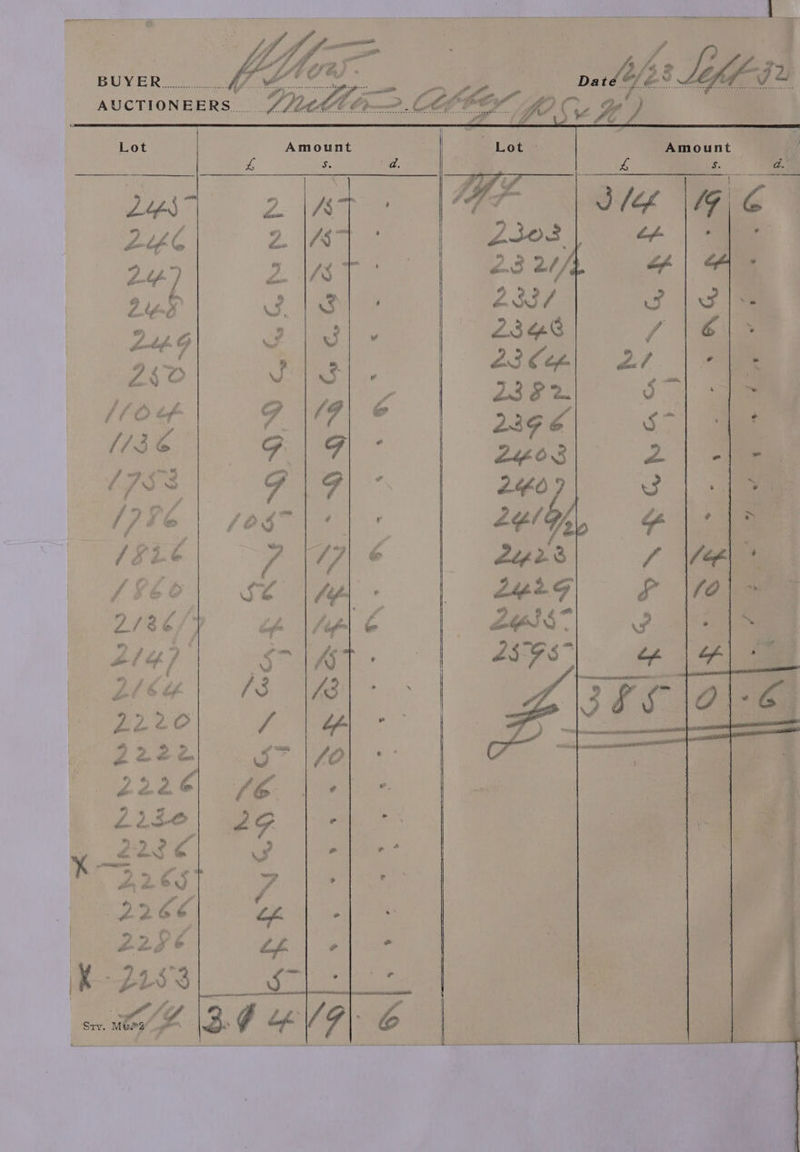 BUYER
Date 12/23 Sept 32
AUCTIONEERS
Lot Amount Lot Amount
£ s. d. £ s. d.
245 2 15 -
246 2 15 -
247 2 15 -
248 3 3 -
249 3 3 -
250 3 3 -
1104 9 19 6
1136 9 9 -
1753 9 9 -
1786 105 - -
1826 7 17 6
1860 56 14 -
2136/7 4 14 6
2147 5 15 -
2164 13 13 -
2220 1 4 -
2222 5 10 -
2226 16 - -
2230 29 - -
X - 2236 3 - -
2265 7 - -
2266 4 - -
2286 4 - -
X - 2253 5 - -
314 19 6
314 19 6
2303 4 - -
2321/2 4 4 -
2331 3 3 -
2343 1 6 -
2364 21 - -
2382 5 - -
2396 5 - -
2403 2 - -
2407 3 - -
2419/20 4 - -
2423 1 14 -
2429 8 10 -
2435 3 - -
2595 4 4 -
£ 385 0 - 6